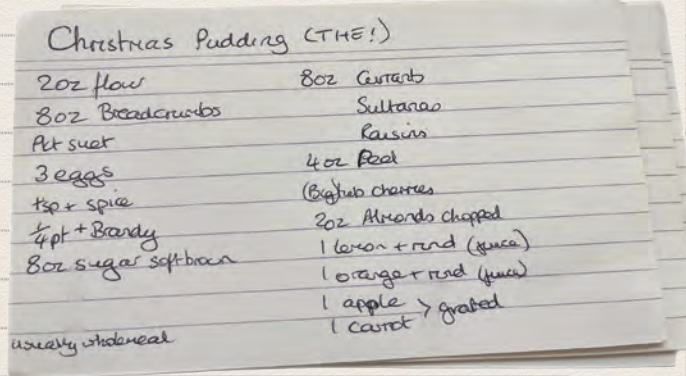 Christmas Pudding (THE!)
2oz flour
8oz Breadcrumbs
Pkt suet
3 eggs
tsp + spice
1/4pt + Brandy
8oz sugar soft brown
usually wholemeal
8oz Currants
Sultanas
Raisins
4oz Peel
(Big) tub cherries
2oz Almonds chopped
1 lemon + rind (juice)
1 orange + rind (juice)
1 apple > grated
1 carrot